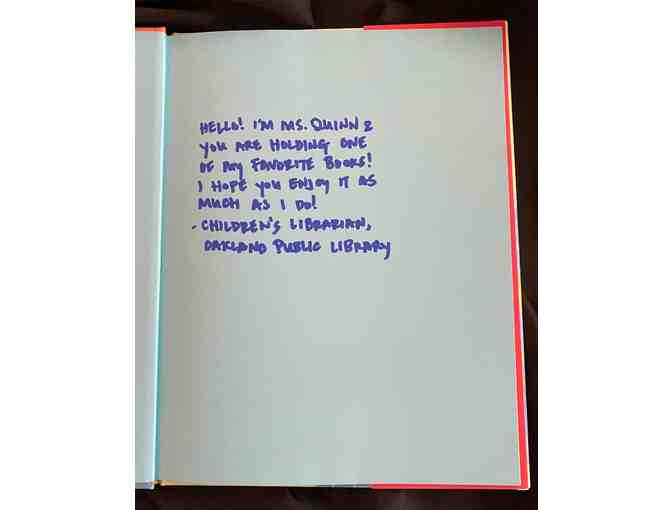 HELLO! I'M MS. QUINN &
YOU ARE HOLDING ONE
OF MY FAVORITE BOOKS!
I HOPE YOU ENJOY IT AS
MUCH AS I DO!
- CHILDREN'S LIBRARIAN,
OAKLAND PUBLIC LIBRARY